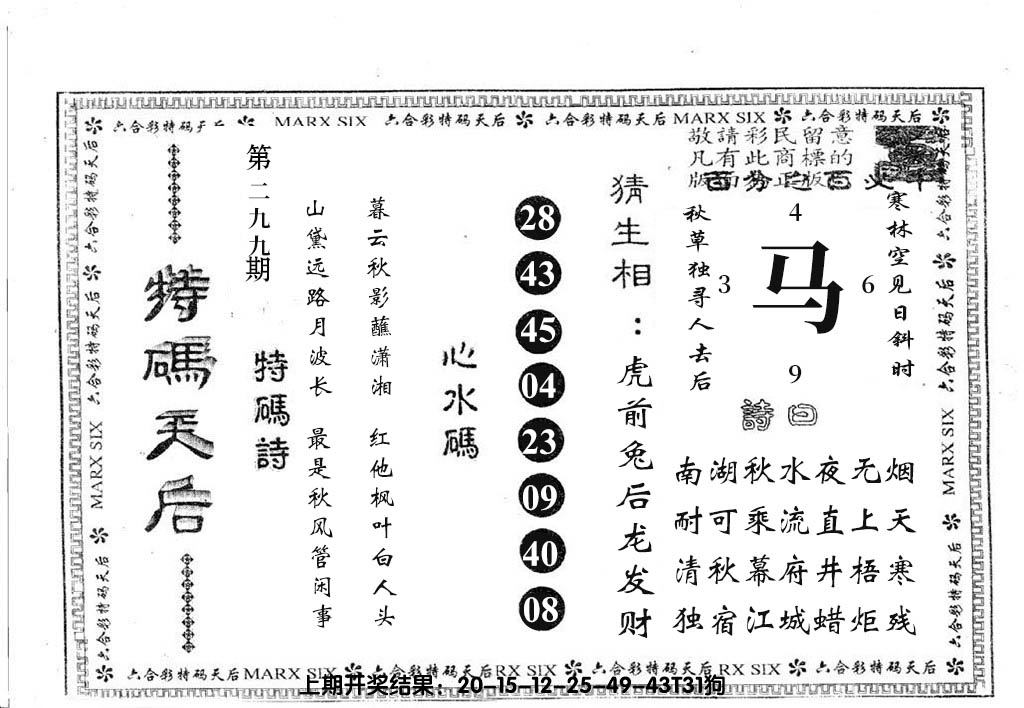 六合彩特码天后 MARX SIX 六合彩特码天后 六合彩特码天后 MARX SIX 六合彩特码天后
敬請彩民留意
凡有此商標的
版面為正版
特碼天后
第二九九期
特碼詩
山黛远路月波长 最是秋风管闲事
暮云秋影蘸潇湘 红他枫叶白人头
心水碼
28
43
45
04
23
09
40
08
猜生相：虎前兔后龙发财
秋草独寻人去后
4
3
马
6
9
寒林空见日斜时
詩曰
南湖秋水夜无烟
耐可乘流直上天
清秋幕府井梧寒
独宿江城蜡炬残
六合彩特码天后
MARX SIX
六合彩特码天后
六合彩特码天后
MARX SIX
六合彩特码天后
六合彩特码天后 MARX SIX 六合彩特码天后 RX SIX 六合彩特码天后 RX SIX 六合彩特码天后
上期开奖结果：20-15-12-25-49-43T31狗